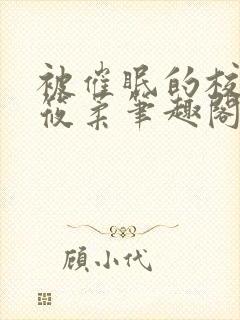 被催眠的校
筱柔笔趣阁
顾小代